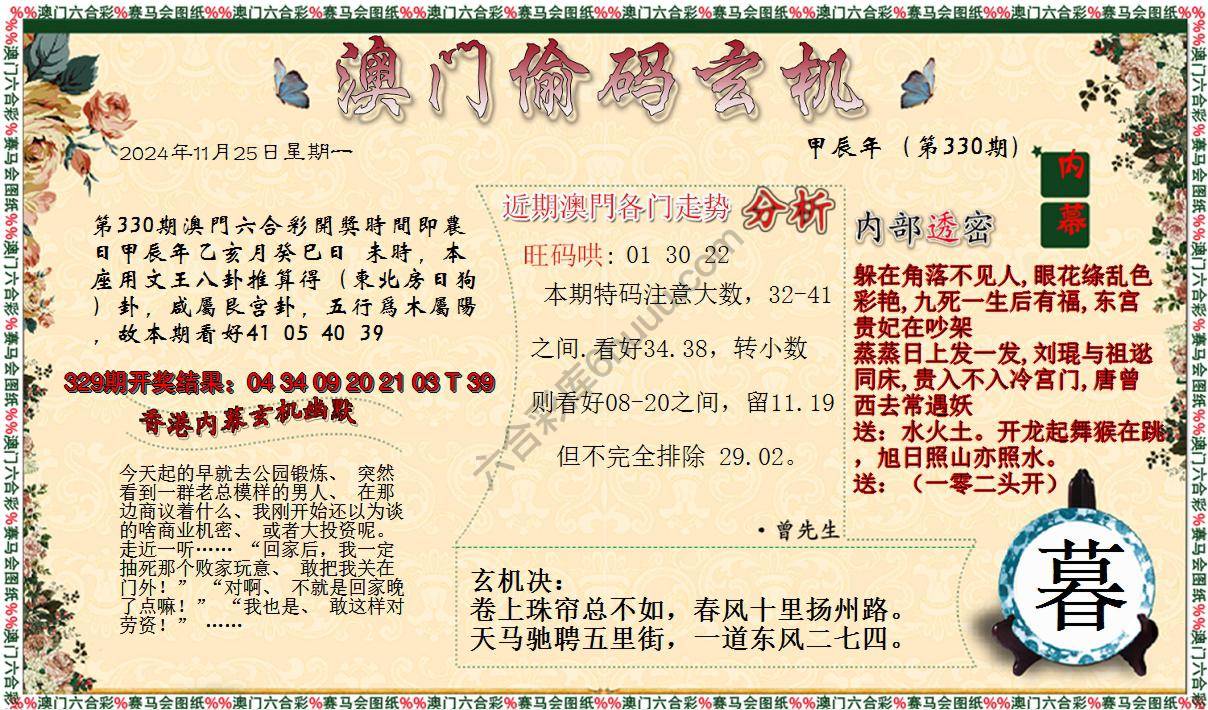 %%澳门六合彩%赛马会图纸%%澳门六合彩%赛马会图纸%%澳门六合彩%赛马会图纸%%澳门六合彩%赛马会图纸%%澳门六合彩%赛马会图纸%%澳门六合彩%赛马会图纸%
澳门偷码玄机
2024年11月25日星期一
甲辰年（第330期）
内幕
第330期澳門六合彩開獎時間即農
日甲辰年乙亥月癸巳日 未時，本
座用文王八卦推算得（東北房日狗
）卦，咸屬艮宫卦，五行爲木屬陽
，故本期看好41 05 40 39
329期开奖结果：04 34 09 20 21 03 T 39
香港内幕玄机幽默
今天起的早就去公园锻炼、 突然
看到一群老总模样的男人、 在那
边商议着什么、我刚开始还以为谈
的啥商业机密、 或者大投资呢。
走近一听…… “回家后，我一定
抽死那个败家玩意、 敢把我关在
门外！” “对啊、 不就是回家晚
了点嘛！” “我也是、 敢这样对
劳资！” ……
近期澳門各门走势 分析
旺码哄: 01 30 22
本期特码注意大数，32-41
之间.看好34.38，转小数
则看好08-20之间，留11.19
但不完全排除 29.02。
·曾先生
内部透密
躲在角落不见人,眼花绦乱色
彩艳,九死一生后有福,东宫
贵妃在吵架
蒸蒸日上发一发,刘琨与祖逖
同床,贵入不入冷宫门,唐曾
西去常遇妖
送：水火土。开龙起舞猴在跳
，旭日照山亦照水。
送：（一零二头开）
玄机决：
卷上珠帘总不如，春风十里扬州路。
天马驰聘五里街，一道东风二七四。
暮
六合彩库6huuu.com
%%澳门六合彩%赛马会图纸%%澳门六合彩%赛马会图纸%%澳门六合彩%赛马会图纸%%澳门六合彩%赛马会图纸%%澳门六合彩%赛马会图纸%%澳门六合彩%赛马会图纸%